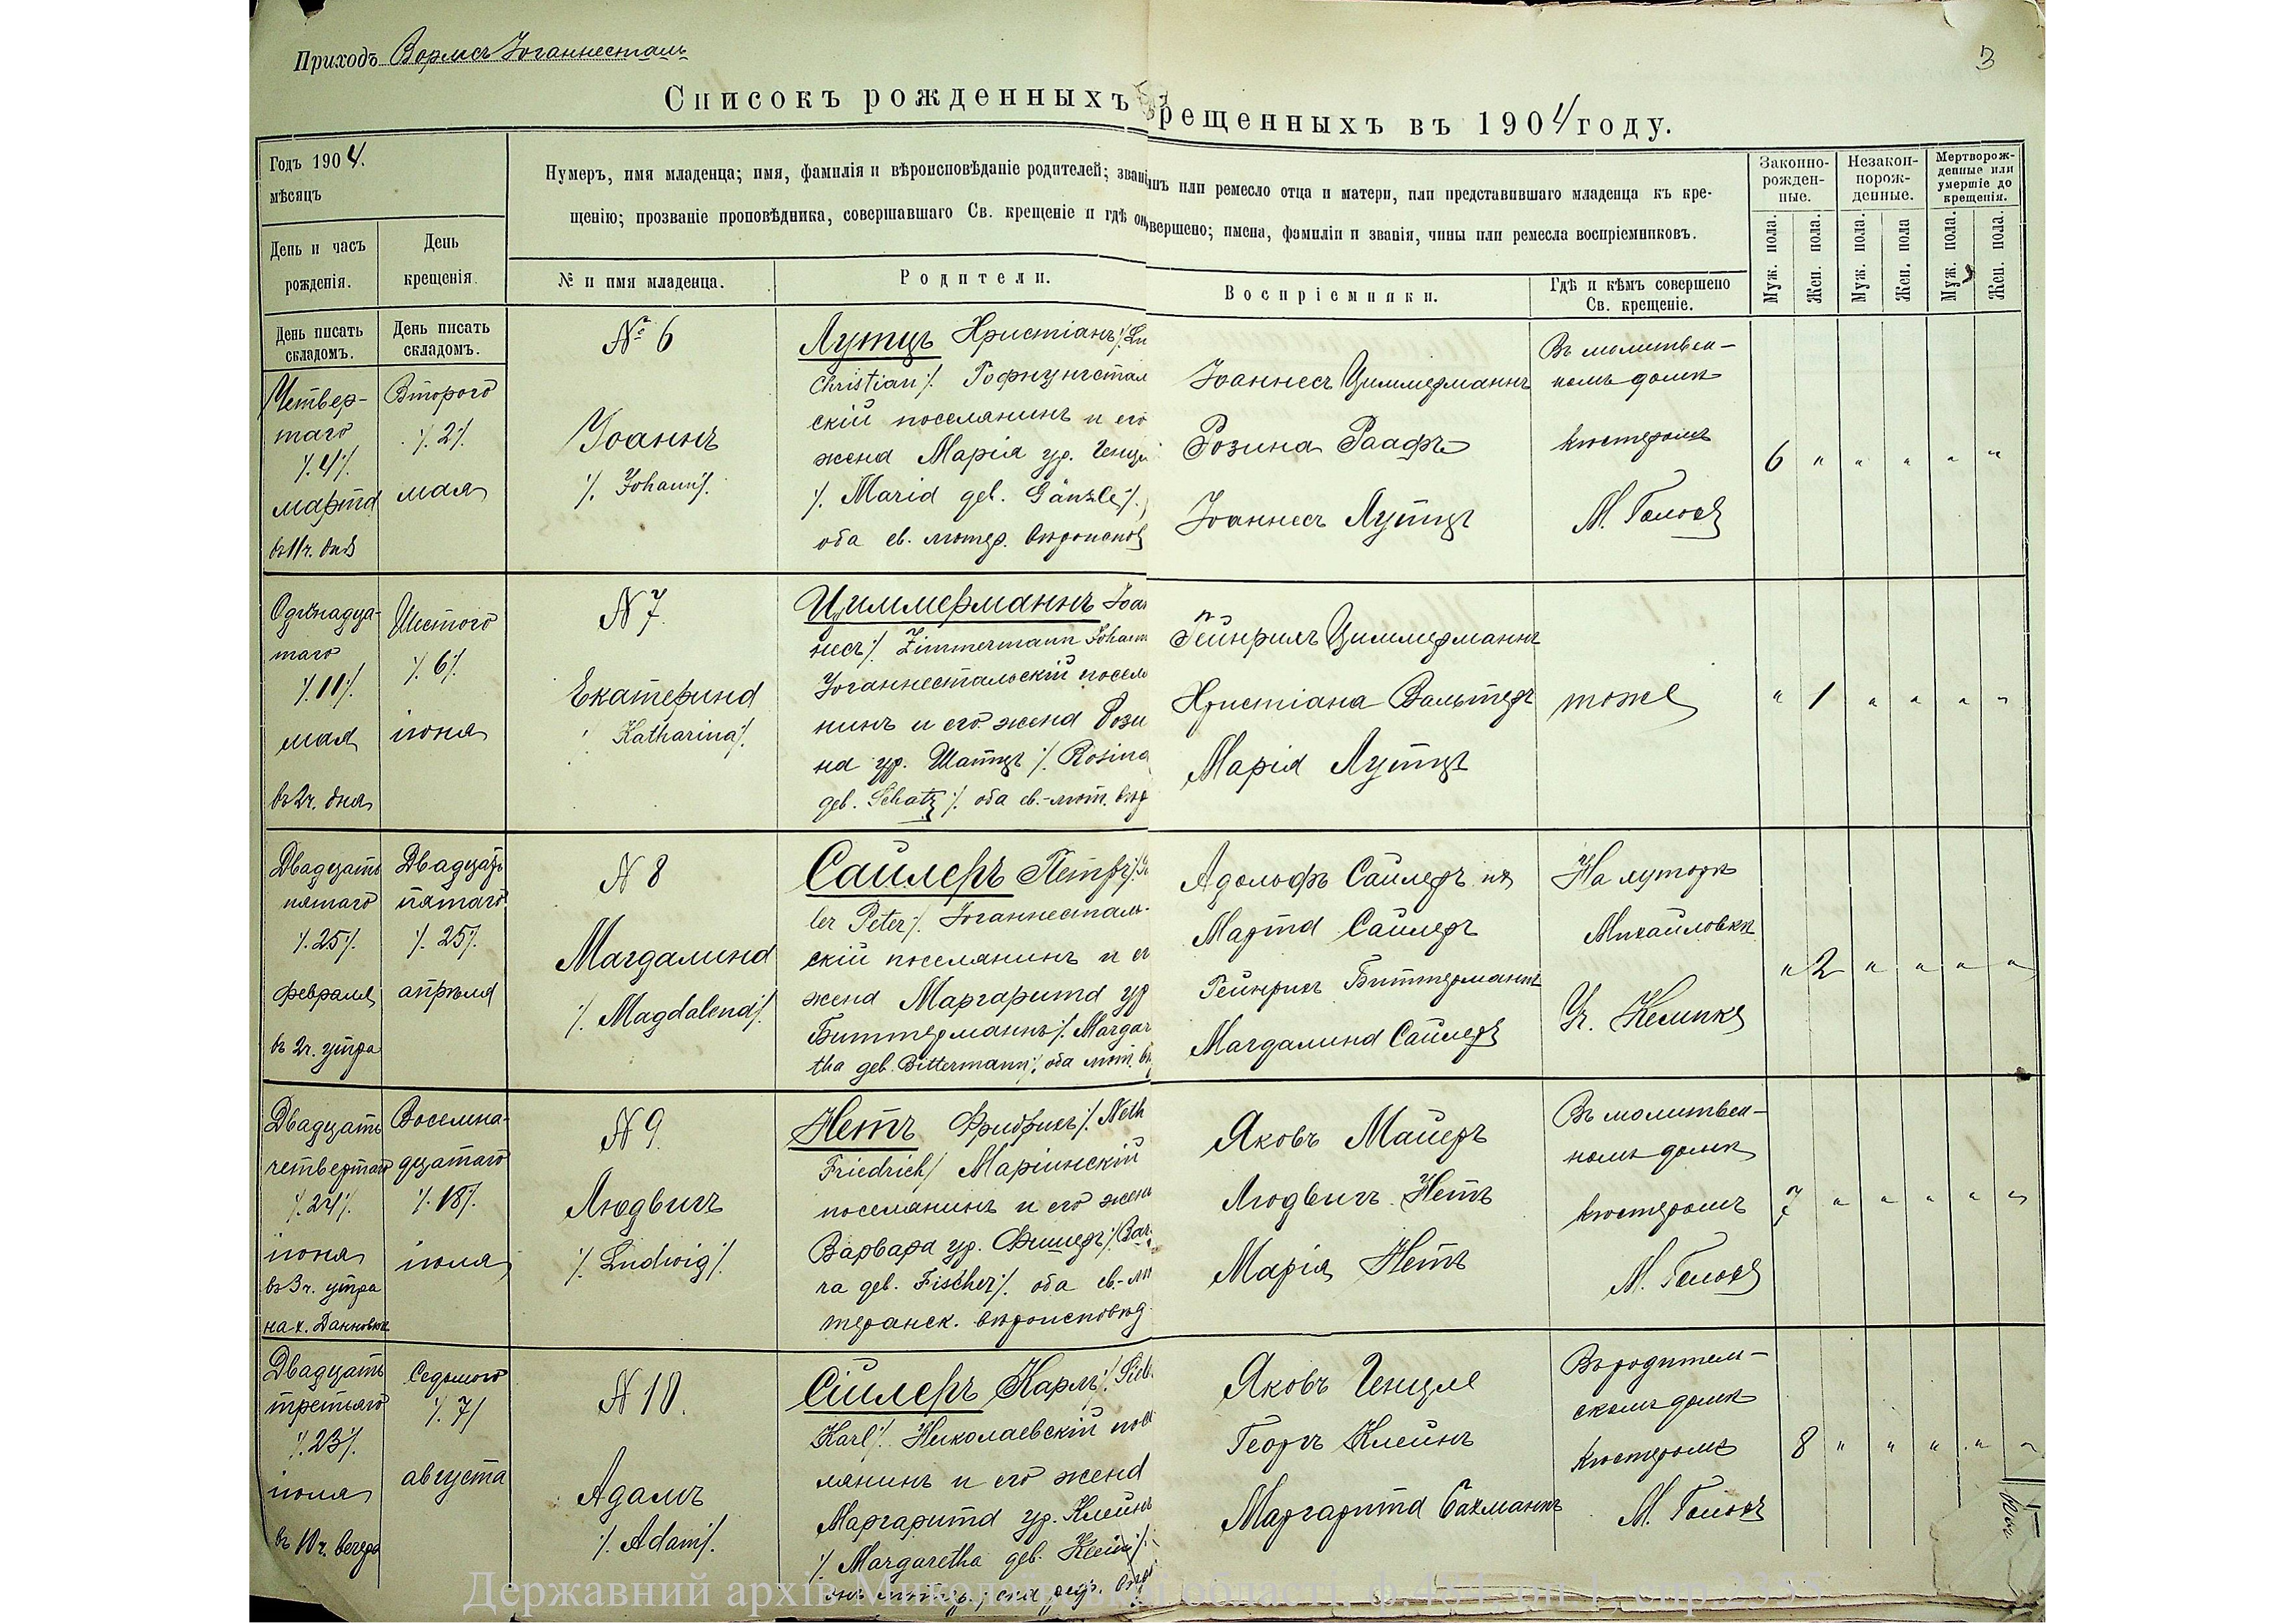 Приходъ Вормсъ Іоганнесталь
3
Списокъ рожденныхъ
рещенныхъ въ 1904 году.
Годъ 1904.
мѣсяцъ
День и часъ
рожденія.
День
крещенія.
Нумеръ, имя младенца; имя, фамилія и вѣроисповѣданіе родителей; звані
щенію; прозваніе проповѣдника, совершавшаго Св. крещеніе и гдѣ он
инъ или ремесло отца и матери, или представившаго младенца къ кре-
вершено; имена, фамиліи и званія, чины или ремесла воспріемниковъ.
№ и имя младенца.
Родители.
Воспріемники.
Гдѣ и кѣмъ совершено
Св. крещеніе.
Законно-
рожден-
ные.
Незакон-
норож-
денные.
Мертворож-
денные или
умершіе до
крещенія.
Муж. пола.
Жен. пола.
Муж. пола.
Жен. пола
Муж. пола.
Жен. пола.
День писать
складомъ.
День писать
складомъ.
Четвер-
таго
/.4/.
марта
въ 11 ч. дня
Второго
/.2/.
мая
№ 6
Іоаннъ
/. Johann/.
Лутцъ Христіанъ/. Lu
Christian/. Гофнунгстал
скій поселянинъ и его
жена Марія ур. Генцл
/. Maria geb. Gänzle/.,
оба ев. лютер. вѣроиспов
Іоаннесъ Циммерманнъ
Розина Раафъ
Іоаннесъ Лутцъ
Въ молитвен-
номъ домѣ
кюстеромъ
6 " " " " "
Одинадца-
таго
/.11/.
мая
въ 2 ч. дня
Шестого
/.6/.
іюня
N 7.
Екатерина
/. Katharina/.
Циммерманнъ Іоан
несъ/. Zimmermann Johann
Іоганнестальскій посел
нинъ и его жена Рози
на ур. Шатцъ /. Rosina
geb. Schatz /. оба ев.-лют. вѣр
Гейнрихъ Циммерманнъ
Христіана Вальтеръ
Марія Лутцъ
тоже
" 1 " " " "
Двадцать
пятаго
/.25/.
февраля
въ 2 ч. утра
Двадцать
пятаго
/.25/.
апрѣля
N 8
Магдалина
/. Magdalena/.
Сайлеръ Петръ/.
ler Peter/. Іоганнесталь-
скій поселянинъ и ег
жена Маргарита ур
Биттерманнъ/. Margar
tha geb. Bittermann/. оба лют. вѣ
Адольфъ Сайлеръ
Марта Сайлеръ
Гейнрихъ Биттерманнъ
Магдалина Сайлеръ
На хуторѣ
Михайловкѣ
" 2 " " " "
Двадцать
четвертаго
/.24/.
іюня
въ 3 ч. утра
на х. Данновкѣ
Восемна-
дцатаго
/.18/.
іюля
N 9.
Людвигъ
/. Ludwig/.
Нетъ Фридрихъ/. Neth
Friedrich/ Маріинскій
поселянинъ и его жена
Варвара ур. Фишеръ/. Bar.
ra geb. Fischer/. оба ев.-лю
теранск. вѣроисповѣд.
Яковъ Майеръ
Людвигъ Нетъ
Марія Нетъ
Въ молитвен-
номъ домѣ
кюстеромъ
7 " " " " "
Двадцать
третьяго
/.23/.
іюля
въ 10 ч. вечера
Седьмого
/.7/
августа
N 10.
Адамъ
/. Adam/.
Сіилеръ Карлъ/. Sieb.
Karl/. Николаевскій посе
лянинъ и его жена
Маргарита ур. Клейнъ
/. Margaretha geb. Klein/.
Яковъ Генцле
Георгъ Клейнъ
Маргарита Бахманнъ
Въ родитель-
скомъ домѣ
кюстеромъ
8 " " " " "
Державний архів Миколаївської області, ф.484, оп.1, спр.2355